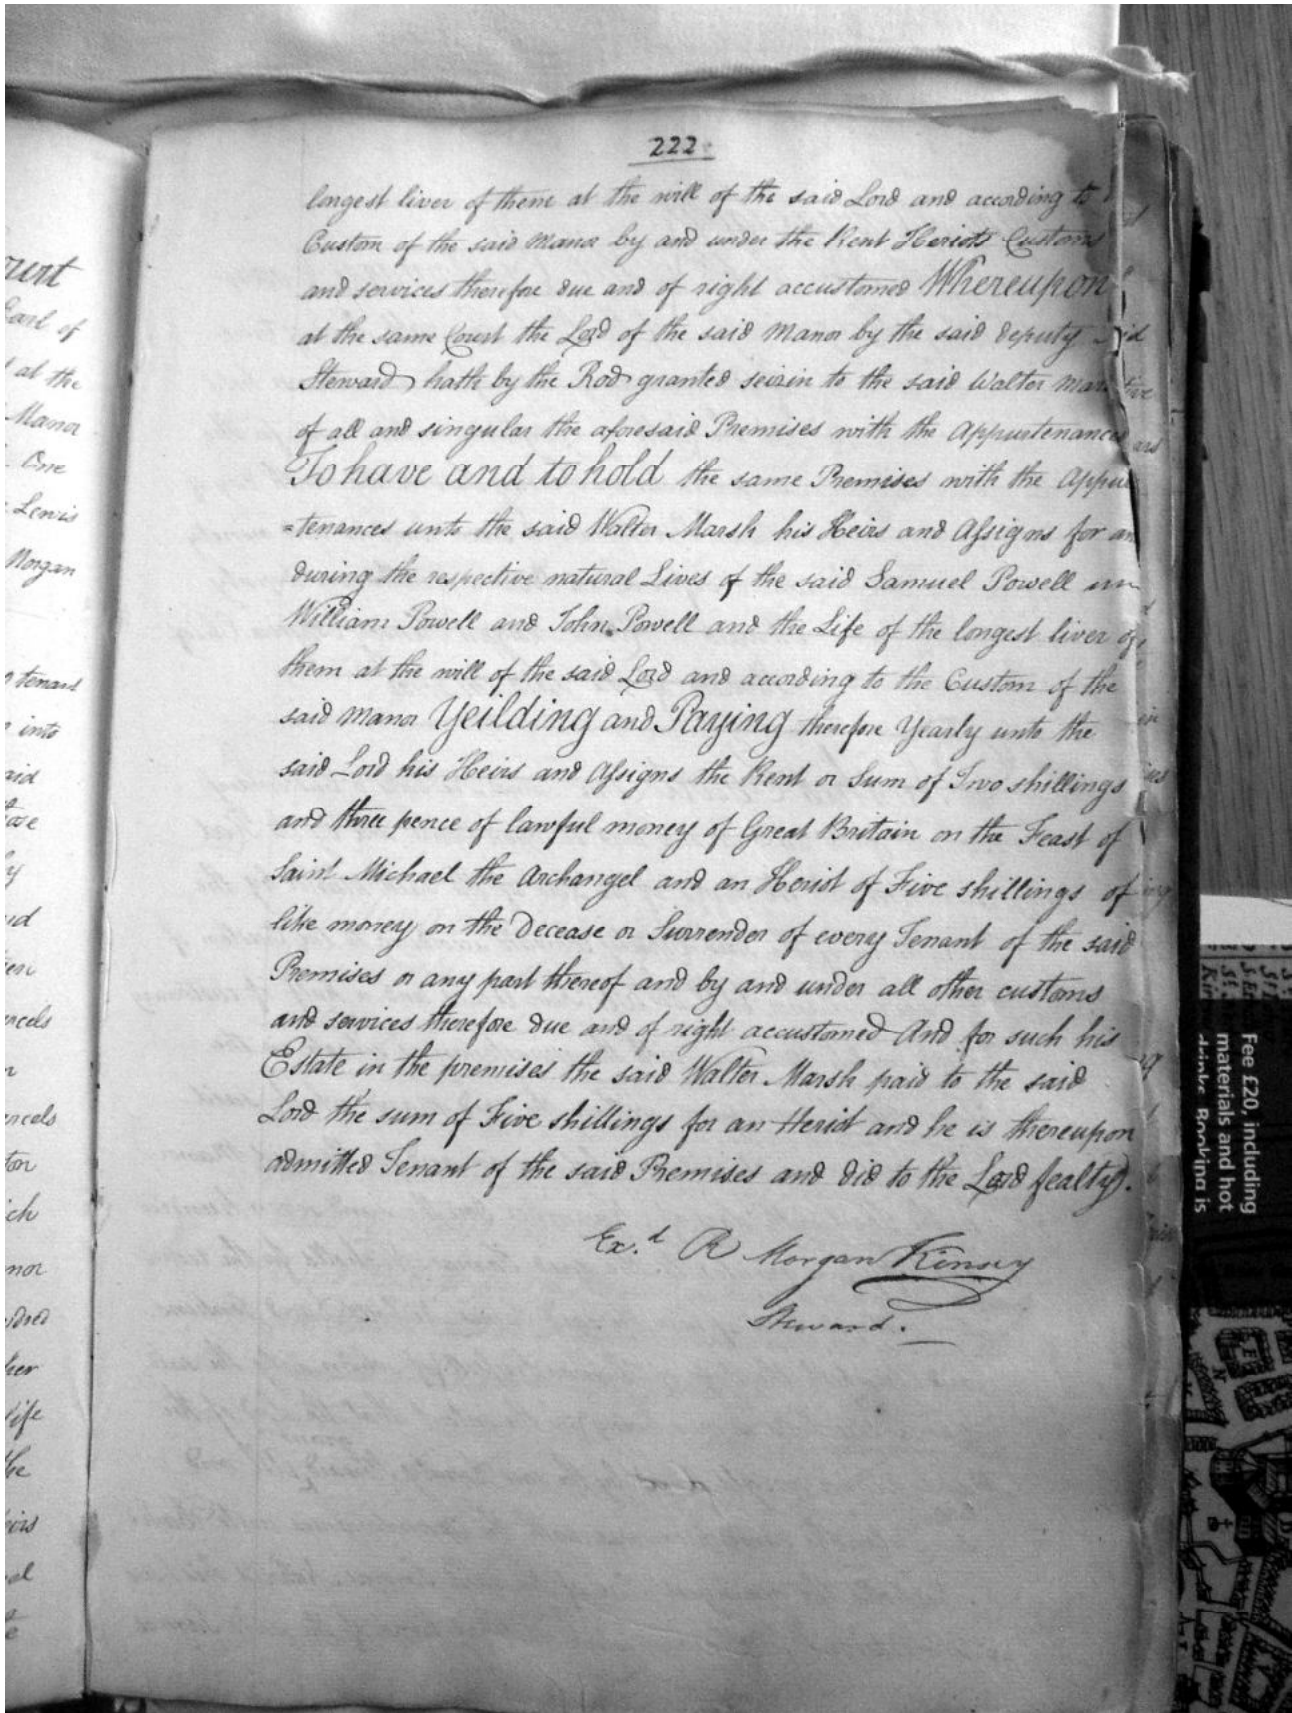 222
longest liver of them at the will of the said Lord and according to
Custom of the said Manor by and under the Rent Heriots Customs
and services therefore due and of right accustomed Whereupon
at the same Court the Lord of the said Manor by the said deputy
Steward hath by the Rod granted seizin to the said Walter Mar
of all and singular the aforesaid Premises with the Appurtenances
To have and to hold the same Premises with the Appur
=tenances unto the said Walter Marsh his Heirs and Assigns for an
during the respective natural Lives of the said Samuel Powell
William Powell and John Powell and the Life of the longest liver of
them at the will of the said Lord and according to the Custom of the
said Manor Yeilding and Paying therefore Yearly unto the
said Lord his Heirs and Assigns the Rent or Sum of Two shillings
and three pence of lawful money of Great Britain on the Feast of
Saint Michael the Archangel and an Heriot of Five shillings of
like money on the Decease or Surrender of every Tenant of the said
Premises or any part thereof and by and under all other customs
and services therefore due and of right accustomed And for such his
Estate in the premises the said Walter Marsh paid to the said
Lord the sum of Five shillings for an Heriot and he is thereupon
admitted Tenant of the said Premises and did to the Lord fealty.
Ex.d R Morgan Kinsey
Steward.
Earl of
at the
Manor
One
Lewis
Morgan
tenant
into
Fee £20, including
materials and hot
drinks. Booking is